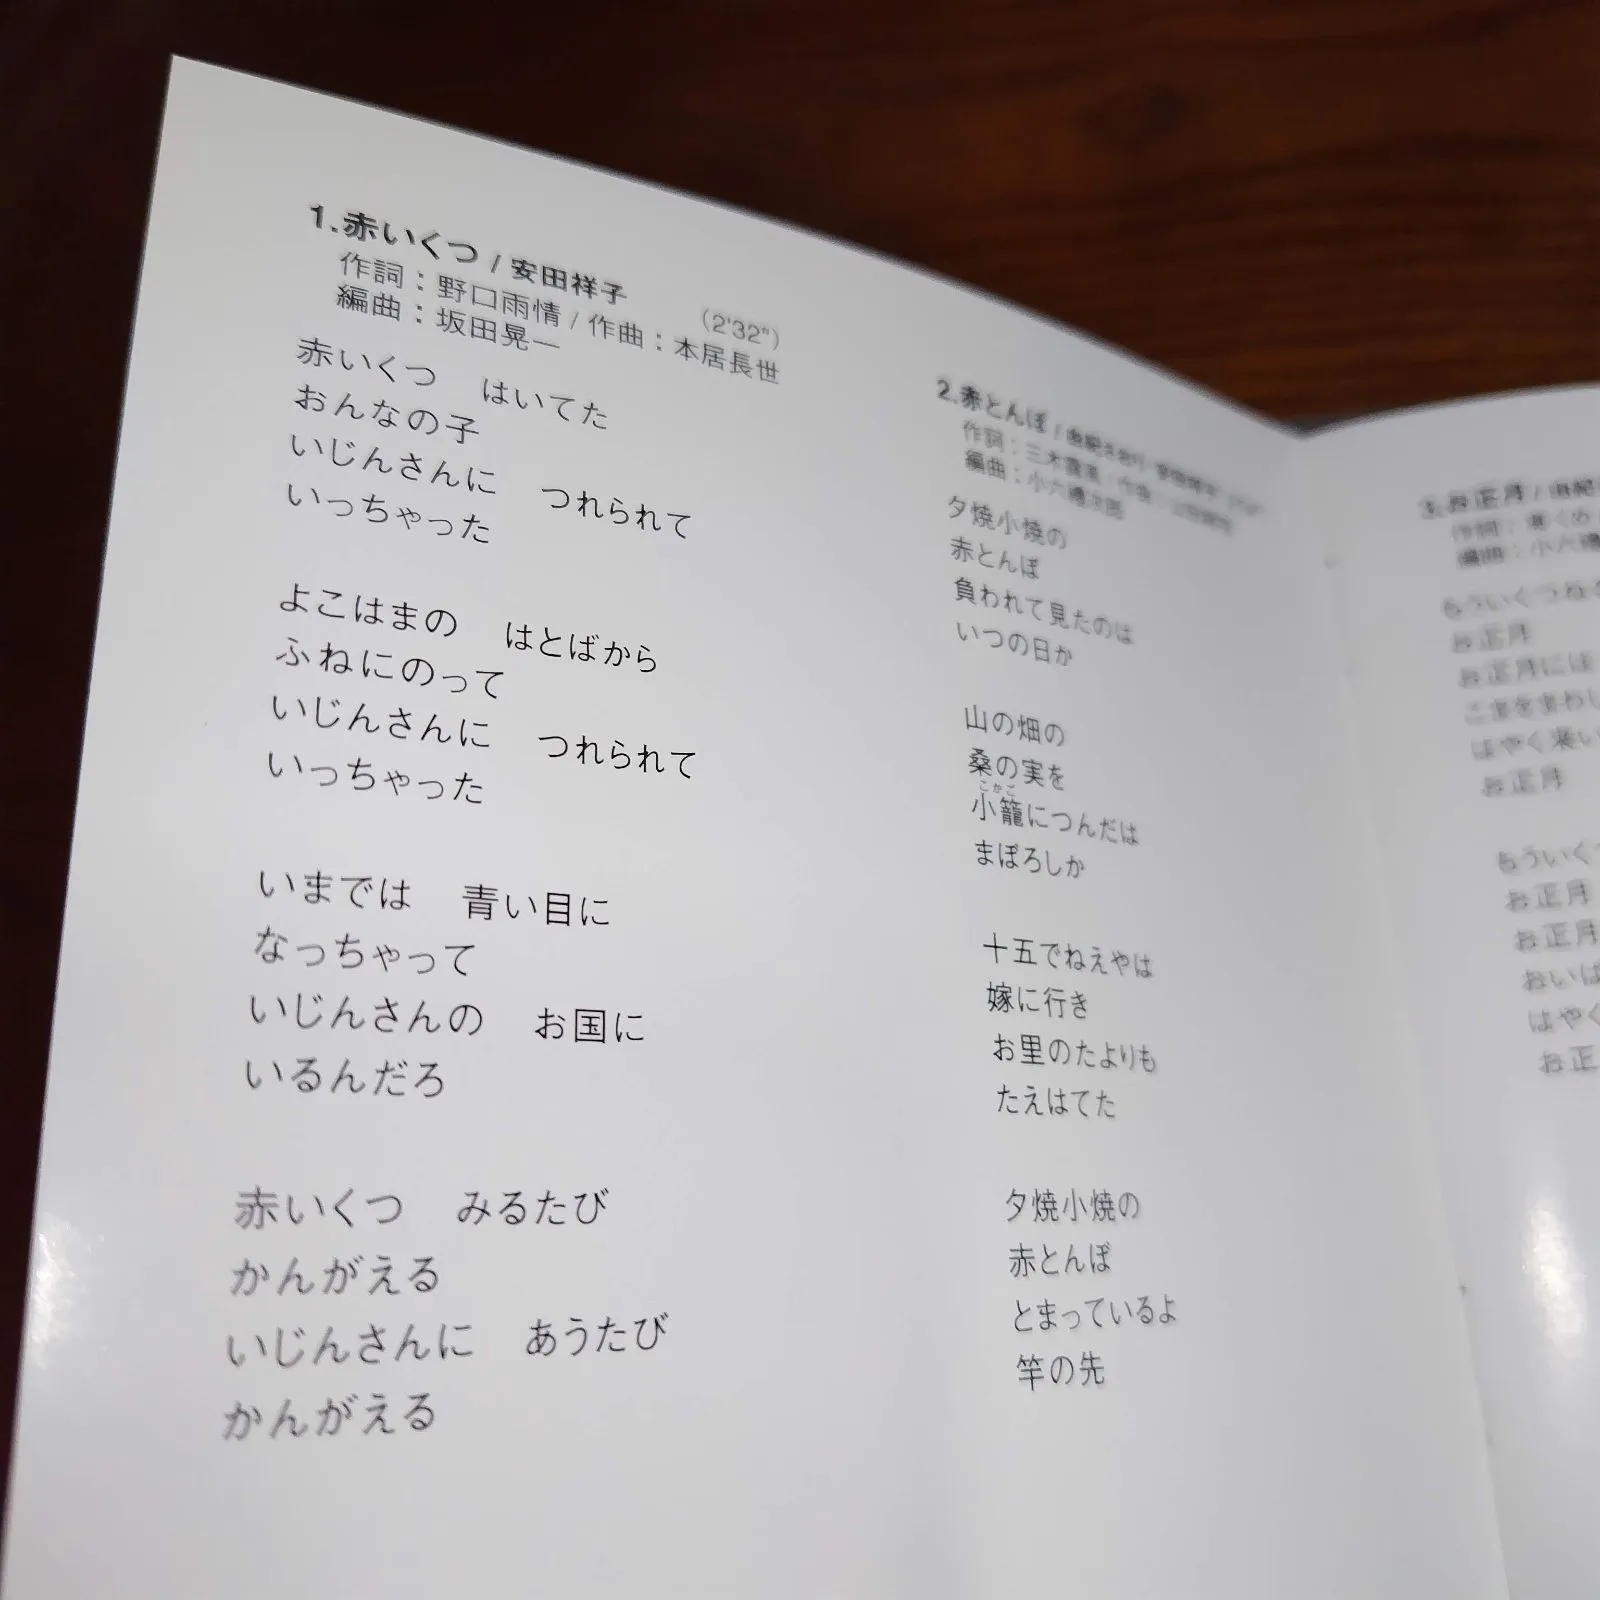 1.赤いくつ / 安田祥子
(2'32")
作詞：野口雨情 / 作曲：本居長世
編曲：坂田晃一
赤いくつ　はいてた
おんなの子
いじんさんに　つれられて
いっちゃった
よこはまの　はとばから
ふねにのって
いじんさんに　つれられて
いっちゃった
いまでは　青い目に
なっちゃって
いじんさんの　お国に
いるんだろ
赤いくつ　みるたび
かんがえる
いじんさんに　あうたび
かんがえる
2.赤とんぼ /
作詞：三木露風
編曲：小六禮次郎
夕焼小焼の
赤とんぼ
負われて見たのは
いつの日か
山の畑の
桑の実を
こかご
小籠につんだは
まぼろしか
十五でねえやは
嫁に行き
お里のたよりも
たえはてた
夕焼小焼の
赤とんぼ
とまっているよ
竿の先
3.お正月 / 由紀
編曲：小六禮
もういくつねる
お正月
お正月には
こまをまわし
はやく来い
お正月
もういくつ
お正月
お正月
おいば
はやく
お正